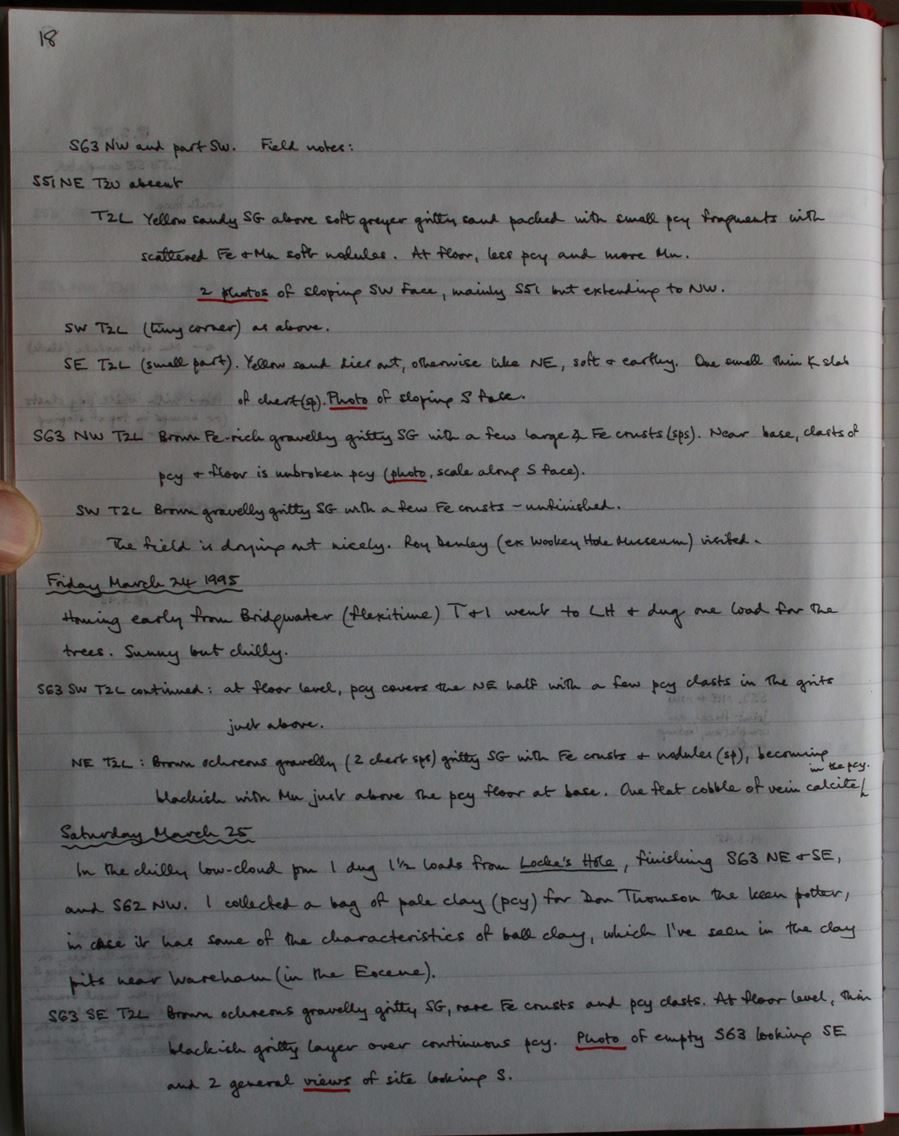 18
S63 NW and part SW. Field notes:
S51 NE T2U absent
T2L Yellow sandy SG above soft greyer gritty sand packed with small pcy fragments with
scattered Fe + Mn soft nodules. At floor, less pcy and more Mn.
2 photos of sloping SW face, mainly S51 but extending to NW.
SW T2L (tiny corner) as above.
SE T2L (small part). Yellow sand dies out, otherwise like NE, soft + earthy. One small thin K slab
of chert (sp). Photo of sloping S face.
S63 NW T2L Brown Fe-rich gravelly gritty SG with a few large Fe crusts (sps). Near base, clasts of
pcy + floor is unbroken pcy (photo, scale along S face).
SW T2L Brown gravelly gritty SG with a few Fe crusts - unfinished.
The field is drying out nicely. Roy Denley (ex Wookey Hole Museum) visited.
Friday March 24 1995
Homing early from Bridgwater (flexitime) T + I went to LH + dug one load for the
trees. Sunny but chilly.
S63 SW T2L continued: at floor level, pcy covers the NE half with a few pcy clasts in the grits
just above.
NE T2L: Brown ochreous gravelly (2 chert sps) gritty SG with Fe crusts + nodules (sp), becoming
blackish with Mn just above the pcy floor at base. One flat cobble of vein calcite in the pcy.
Saturday March 25
In the chilly low-cloud pm I dug 1½ loads from Locke's Hole, finishing S63 NE + SE,
and S62 NW. I collected a bag of pale clay (pcy) for Don Thomson the keen potter,
in case it has some of the characteristics of ball clay, which I've seen in the clay
pits near Wareham (in the Eocene).
S63 SE T2L Brown ochreous gravelly gritty SG, rare Fe crusts and pcy clasts. At floor level, thin
blackish gritty layer over continuous pcy. Photo of empty S63 looking SE
and 2 general views of site looking S.